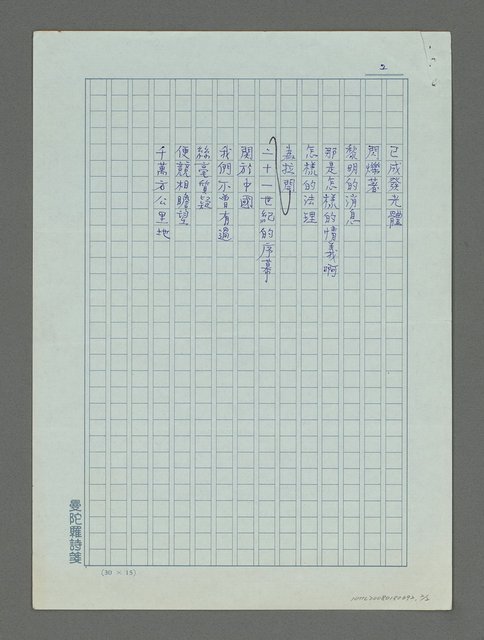 2
已成發光體
閃爍著
黎明的消息
那是怎樣的情義啊
怎樣的法理
二十一世紀的序幕
關於中國
我們不曾有過
絲毫質疑
便競相瞻望
千萬方公里地
曼陀羅詩箋
(30 × 15)